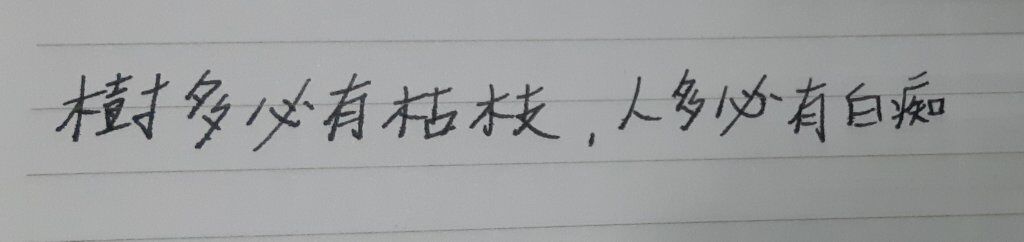 樹多必有枯枝，人多必有白痴